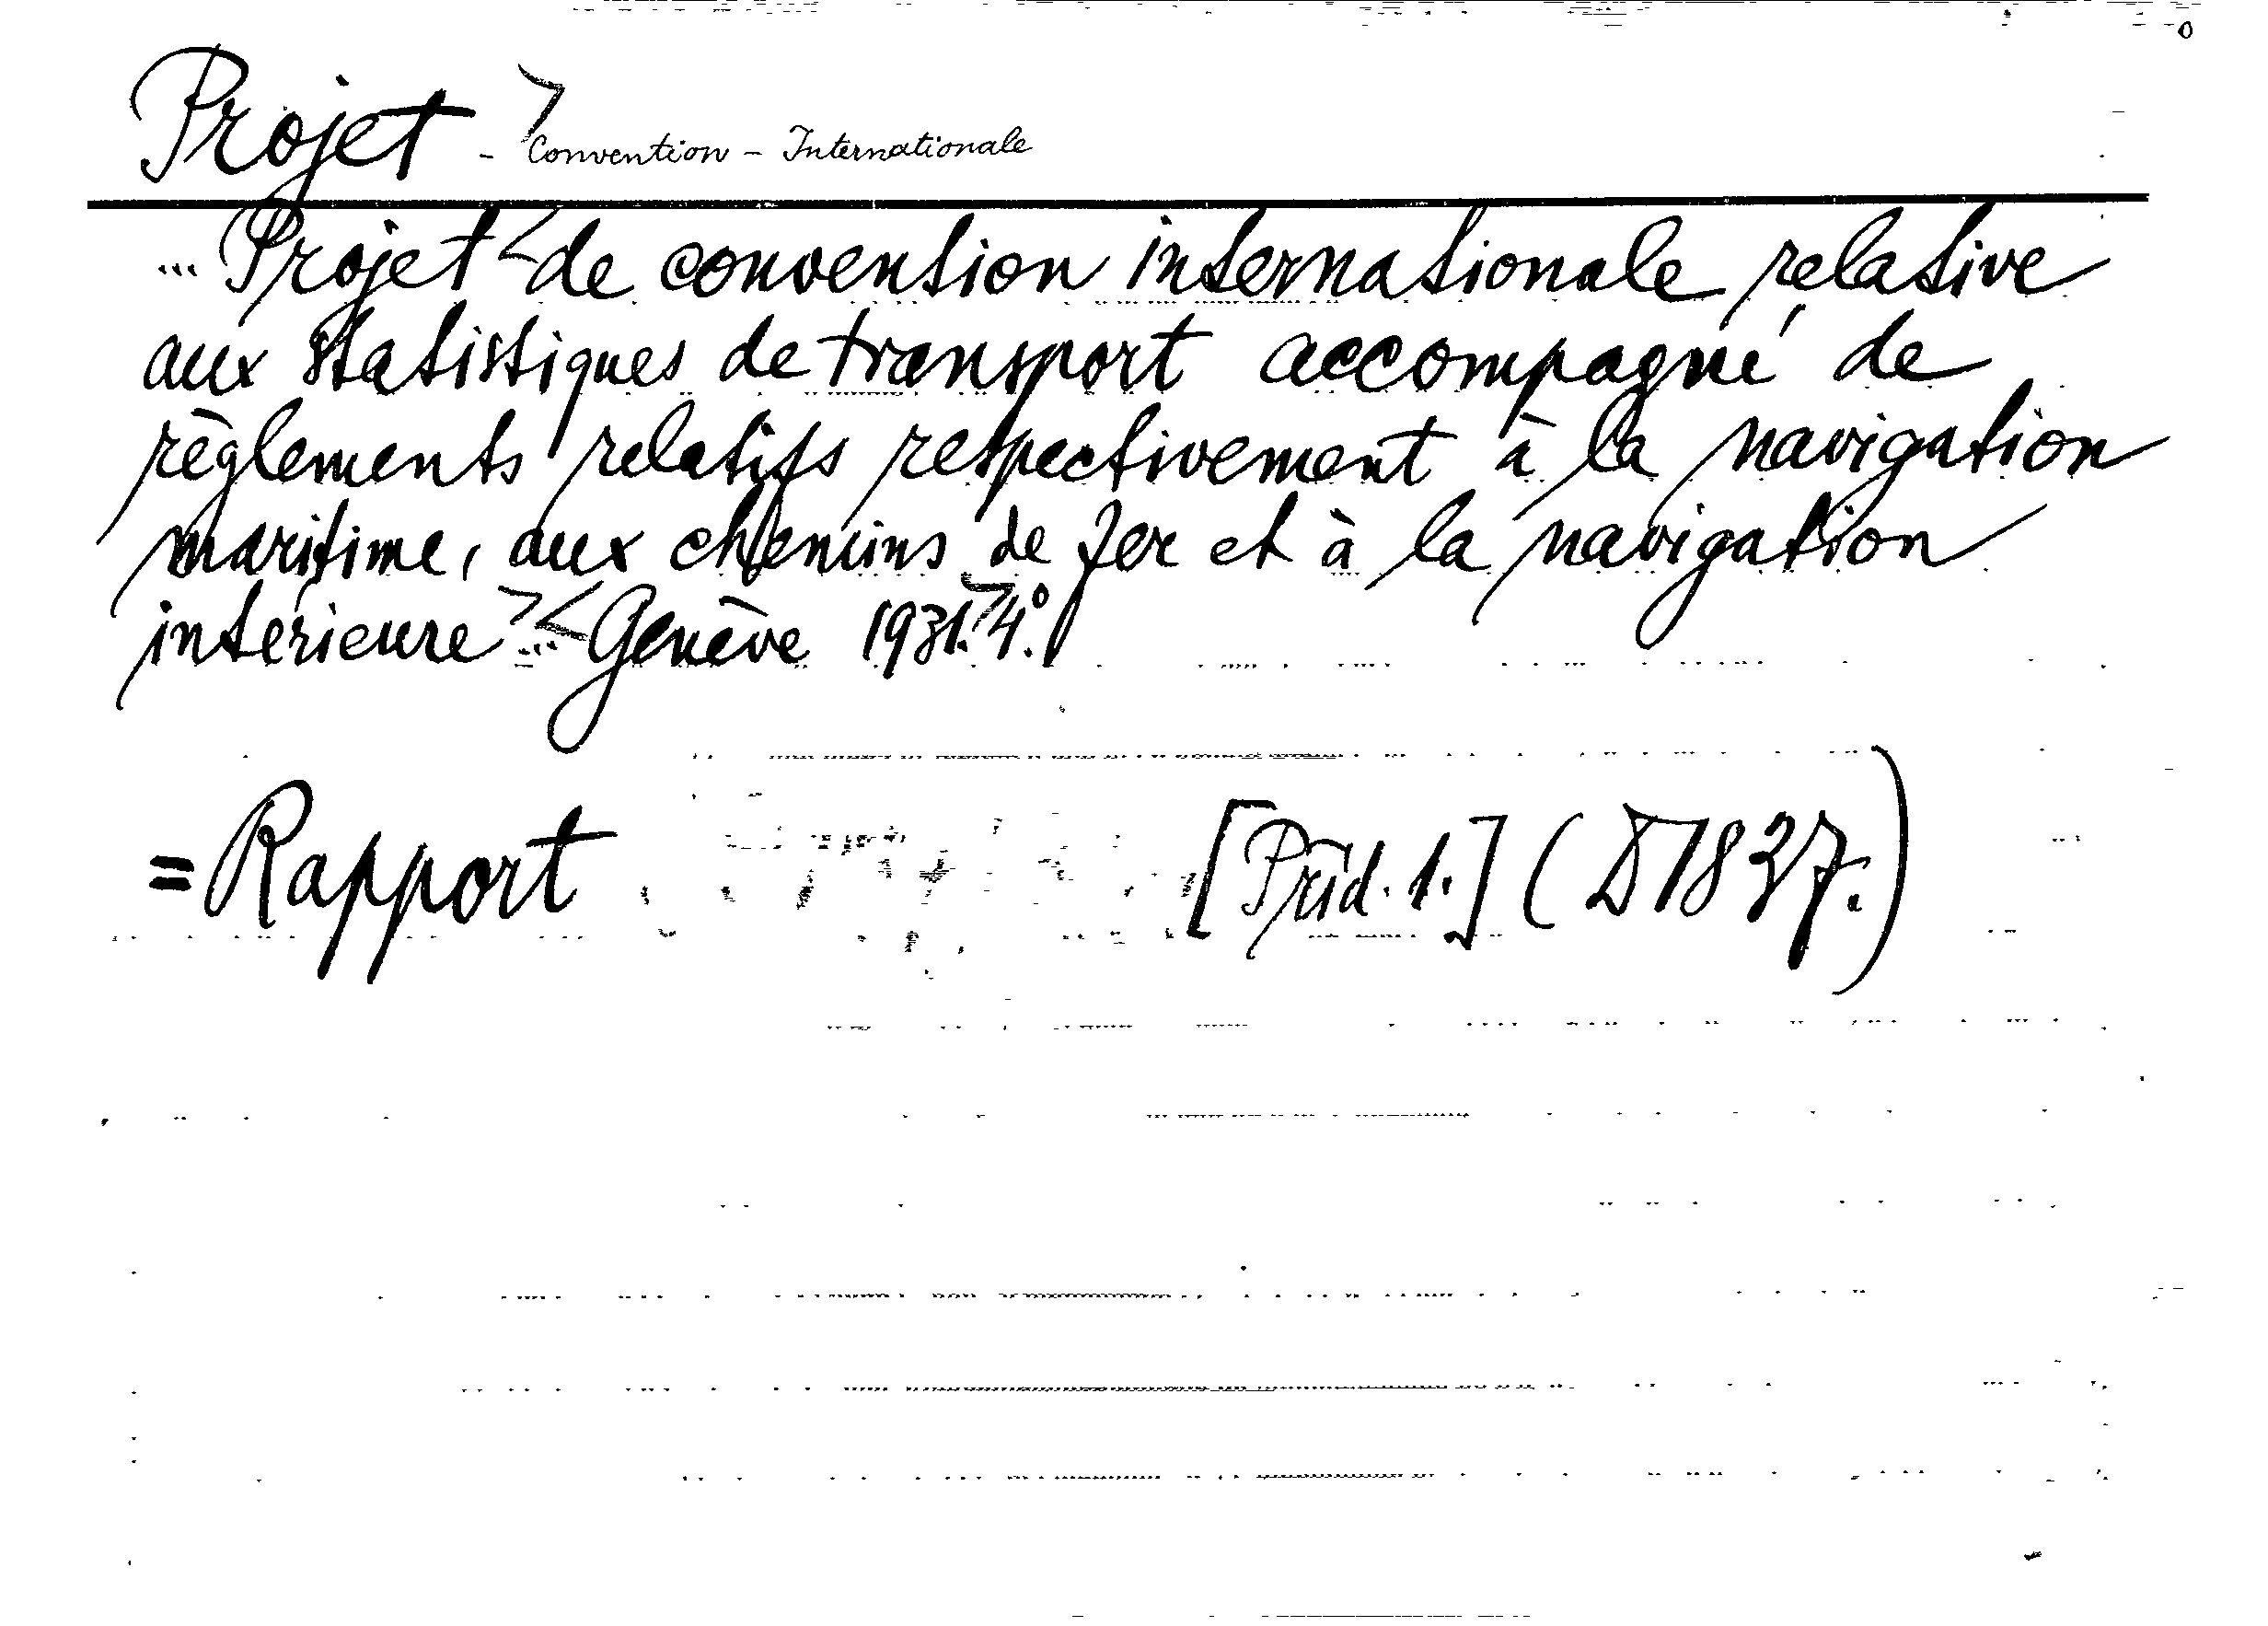 Projet - Convention - Internationale
... Projet de convention internationale relative
aux statistiques de transport accompagné de
règlements relatifs respectivement à la navigation
maritime, aux chemins de fer et à la navigation
interieure ... Genève 1931. 4°.
= Rapport [Präd. 1.] (D 1837.)